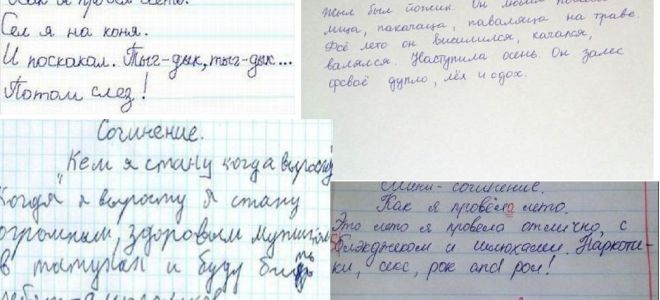 Как я провёл лето.
Сел я на коня.
И поскакал. Тыг-дык, тыг-дык...
Потом слез!
Жыл был йожик. Он
мица, пакачаца, паваляца на траве.
Фсё лето он висилился, качался,
валялся. Наступила осень. Он залес
фсваё дупло, лёх и одох.
Сочинение.
"Кем я стану когда вырасту
Когда я вырасту я стану
огромным, здоровым мужиком
в татухах и буду бить
Мини-сочинение.
Как я провела лето.
Это лето я провела отлично, с
и шлюхами. Наркоти-
ки, секс, рок and рол!